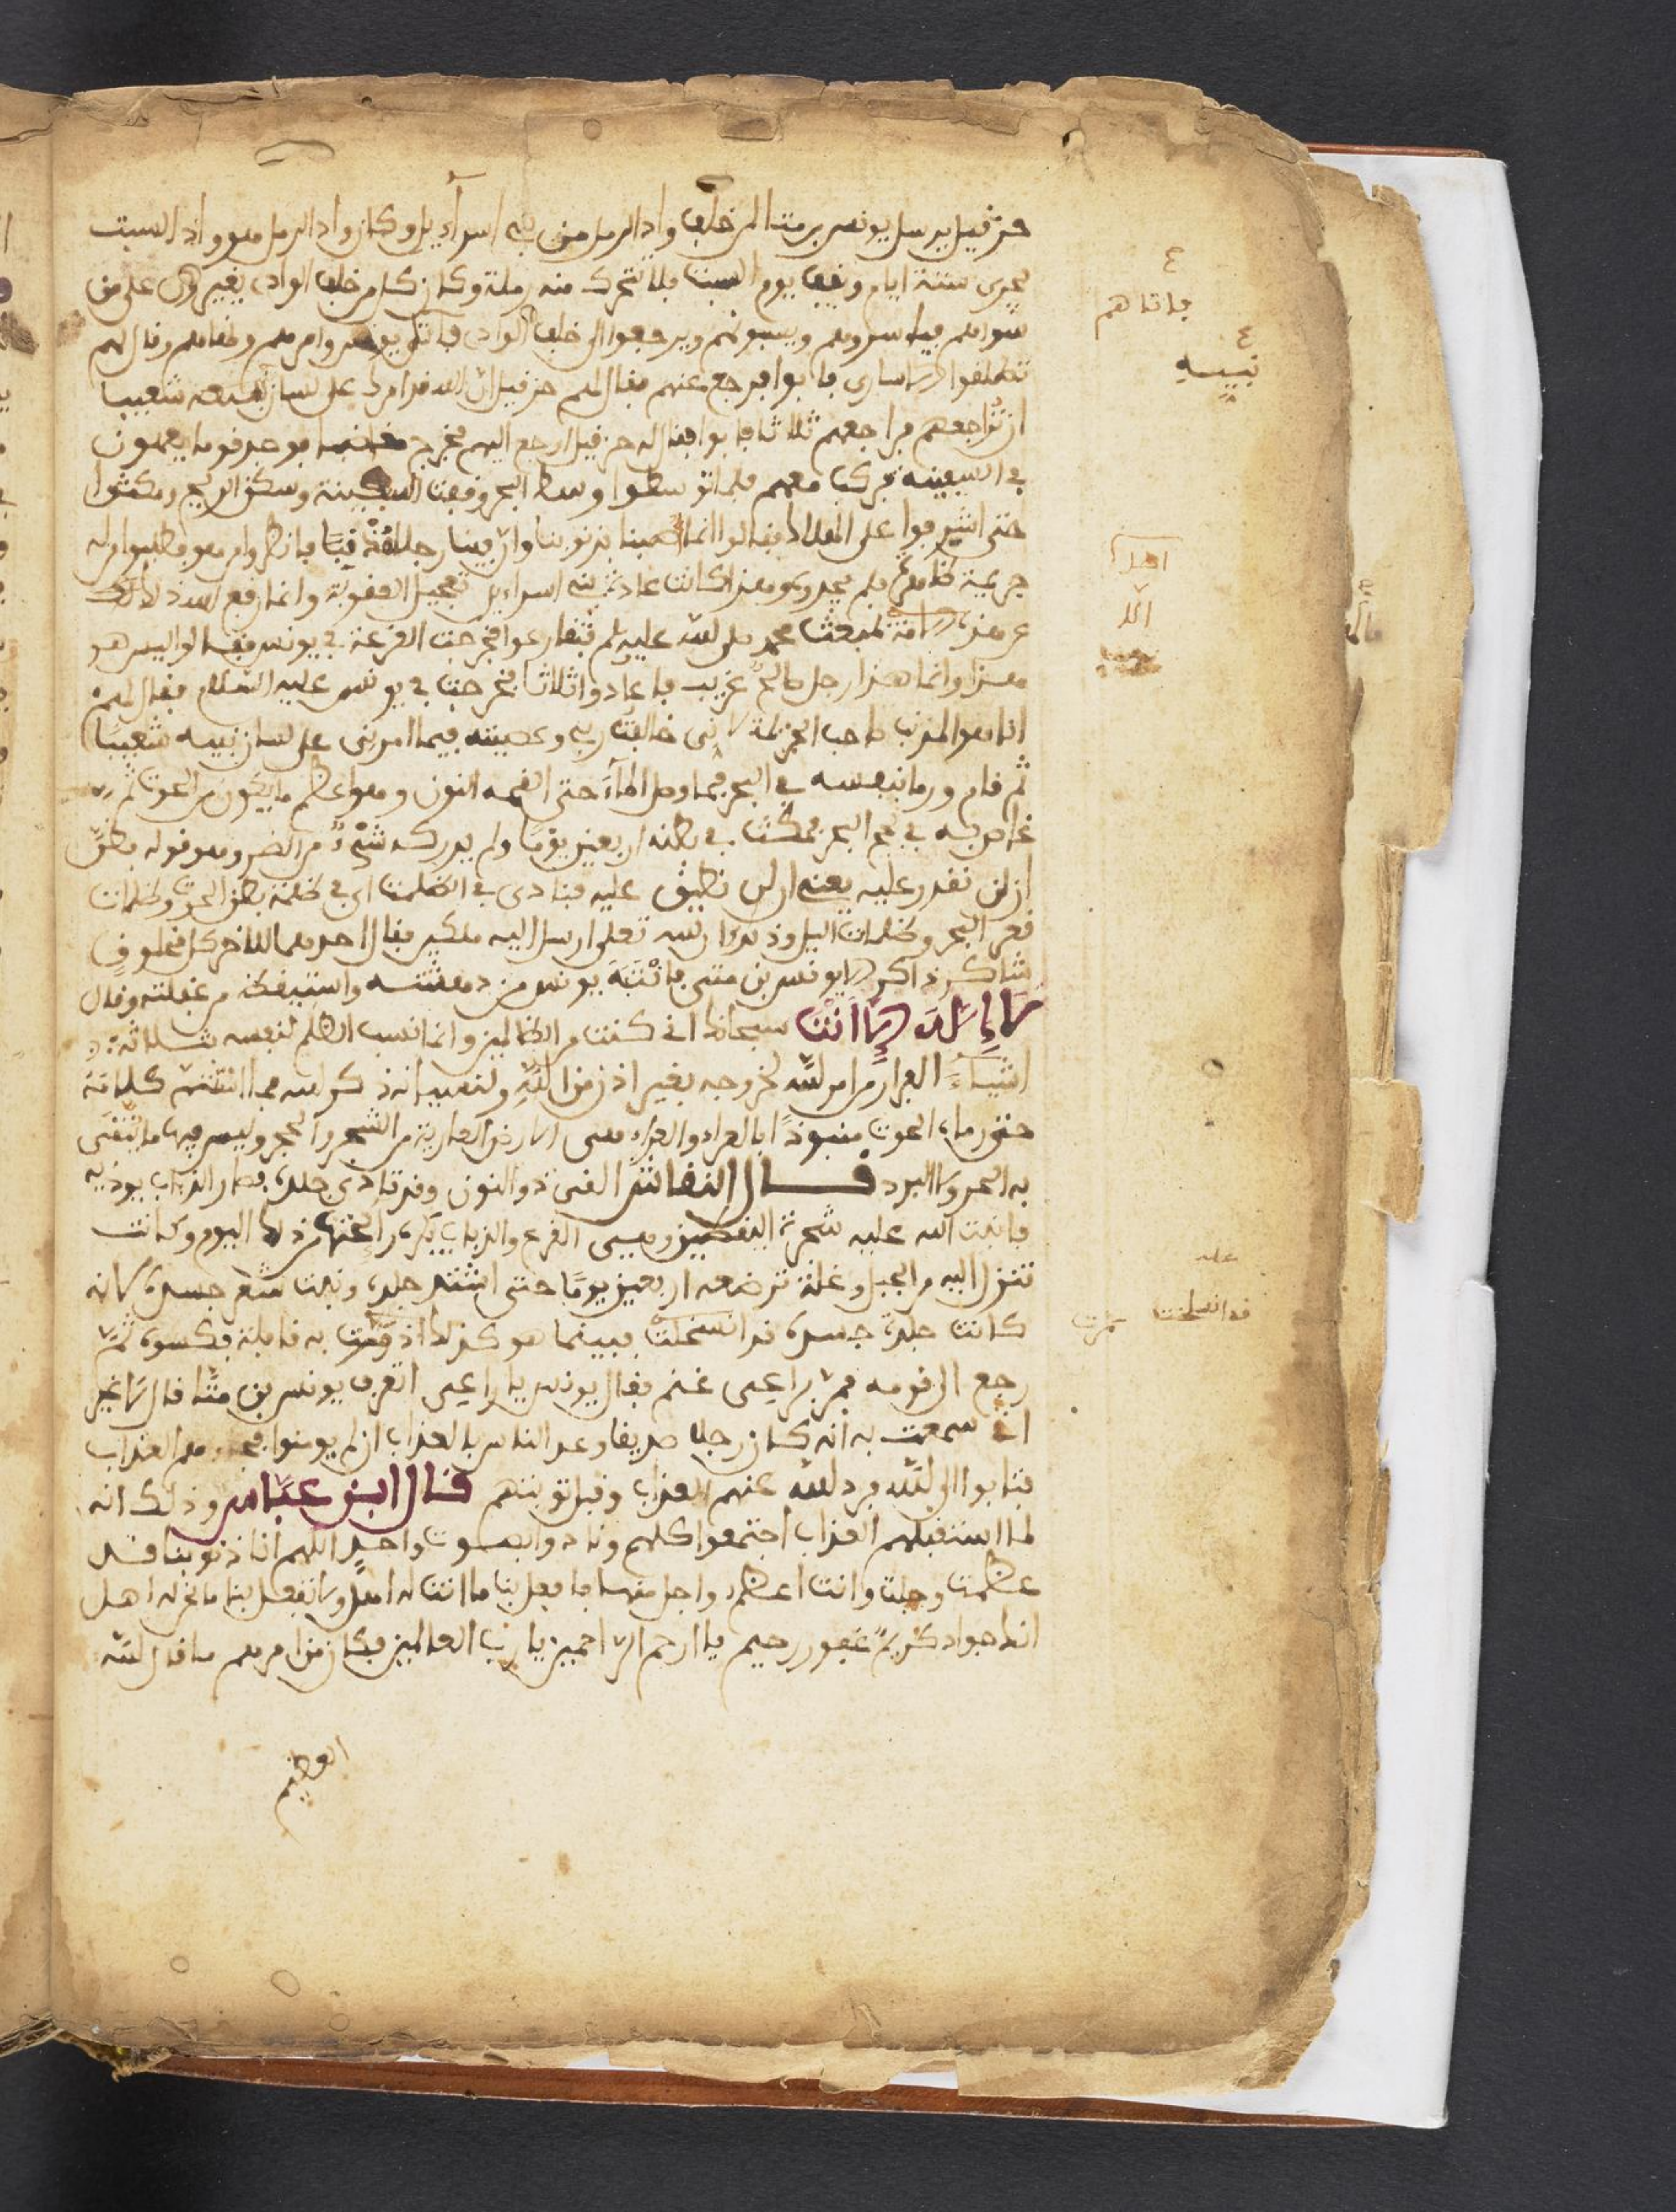 حزفيل يرسل يونس بن متا الى خلف واد الرمل من بني اسرآءيل وكان واد الرمل هو واد السبت
يجرى ستة ايام ويقف يوم السبت فلا تتحرك منه رملة وكان كل من خلف الوادى يغير على من
سواهم فياسروهم ويسبونهم ويرجعوا الى خلف الوادى فاتى يونس وامرهم ونهاهم وقال لهم
تطلقوا الاسارى فابوا فرجع عنهم فقال لهم حزفيل ان الله قد امرك على لسان نبيه شعيبا
ان تراجعهم فراجعهم ثلاثا فابوا فقال له حزفيل ارجع اليهم فخرج مغاضبا فوجد قوما يعملون
في السفينة فركب معهم فلما توسطوا وسط البحر وقفت السفينة وسكن الريح ومكثوا
حتى اشرفوا على الهلاك فقالوا انما بذنوبنا وان فينا رجلا مذنبا فانظروا من هو فطلبوا له
جريمة فلم يجدوا وهكذا كانت عادة بني اسراءيل تعجيل العقوبة وانما رفع الله ذلك
عن هذه الامة لمبعث محمد صلى الله عليه وسلم فتقارعوا فخرجت القرعة في يونس فقالوا ليس هو
هذا وانما هذا رجل صالح غريب فاعادوا ثلاثا فخرجت في يونس عليه السلام فقال لهم
انا هو المذنب صاحب الخطيئة لانى خالفت ربي وعصيته فيما امرنى على لسان نبيه شعيبا
ثم قام ورما بنفسه في البحر فما وصل المآء حتى التقمه النون وهو اعظم ما يكون من الحوت ثم
غاص به في لجج البحر فمكث في بطنه اربعين يوما ولم يدركه شيء من الضر وهو قوله فظن
ان لن نقدر عليه يعنى ان لن نضيق عليه فنادى في الظلمت اى في ظلمة بطن الحوت وظلمات
قعر البحر وظلمات اليل وذكر ان الله تعلى ارسل اليه ملكين فقال احدهما للاخر كل مخلوف
شاكر ذاكر الا يونس بن متى فانتبه يونس من دهشته واستيقظ من غفلته وقال
لا إله إلا أنت سبحانك انى كنت من الظالمين وانما نسب الظلم لنفسه بثلاثة
اشياء الفرار من امر الله لخروجه بغير اذن من الله ولنسيانه ذكر الله فما انقضت كلامه
حتى رماه الحوت منبوذا بالعراء والعراء هى الارض العارية من الشجر والحجر وليس فيها ما يتقى
به الحر ولا البرد قال النقاش القى ذو النون وقد تاذى جلده فصار الذباب يوذيه
فانبت الله عليه شجرة اليقطين وهى القرع والذباب يكره رايحتها من ذلك اليوم وكانت
تنزل اليه من الجبل وعلة ترضعه اربعين يوما حتى اشتد جلده ونبت شعر جسده لانه
كانت جلدة جسده قد انسخلت فبينما هو كذلك اذ مرت به قافلة فكسوه ثم
رجع الى قومه فمر براعى غنم فقال يونس يا راعى اتعرف يونس بن متا قال لا غير
انى سمعت به انه كان رجلا صديقا وعد الناس بالعذاب ان لم يومنوا فجاءهم العذاب
فتابوا الى الله فرد الله عنهم العذاب وقبل توبتهم قال ابن عباس وذلك انه
لما استقبلهم العذاب اجتمعوا كلهم ونادوا بصوت واحد اللهم ان ذنوبنا قد
عظمت وجلت وانت اعظم واجل منها فافعل بنا ما انت له اهل ولا تفعل بنا ما نحن له اهل
انك جواد كريم غفور رحيم يا ارحم الراحمين يا رب العالمين فكان من امرهم ما قال الله
العظيم
فاتاهم
نبيه
اهلك
الله
قد انسلخت
مرت